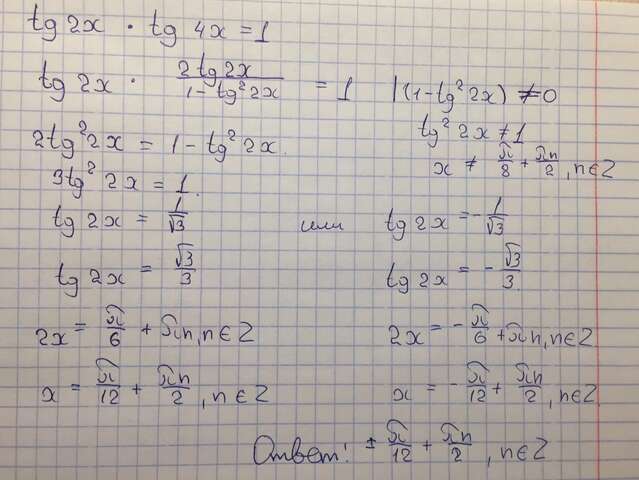 tg 2x · tg 4x = 1
tg 2x · 2tg2x/(1-tg²2x) = 1 |(1-tg²2x) ≠ 0
tg²2x ≠ 1
2tg²2x = 1 - tg²2x.
x ≠ π/8 + πn/2, n∈Z
3tg²2x = 1.
tg 2x = 1/√3 или tg 2x = -1/√3
tg 2x = √3/3 tg 2x = -√3/3
2x = π/6 + πn, n∈Z 2x = -π/6 + πn, n∈Z
x = π/12 + πn/2, n∈Z x = -π/12 + πn/2, n∈Z
Ответ: ± π/12 + πn/2, n∈Z